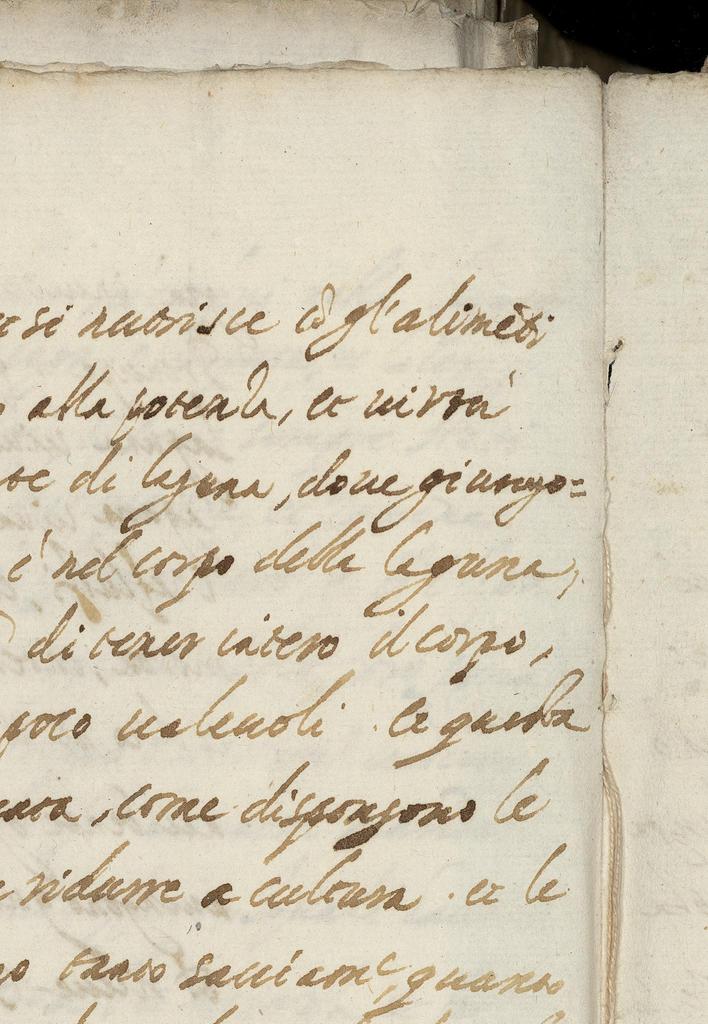 si nutrisce cõ gl'alimẽti
alla potenza, et virtù
di laguna, doue giungo=
è nel corpo della laguna,
di tener intero il corpo,
poco ualeuoli. et questa
come dispongono le
ridurre a cultura. et le
tanto quanto